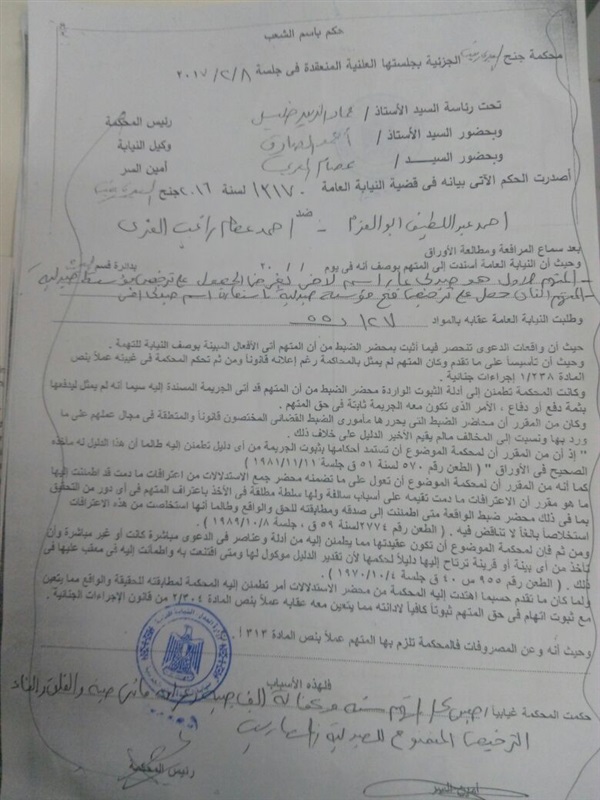 حكم باسم الشعب
محكمة جنح الجزئية بجلستها العلنية المنعقدة فى جلسة ٢٠١٧/٢/٨
تحت رئاسة السيد الأستاذ / رئيس المحكمة
وبحضور السيد الأستاذ / وكيل النيابة
وبحضور الســـيد / عصام أمين السر
أصدرت الحكم الآتى بيانه فى قضية النيابة العامة ١٣١٧٠ لسنة ٢٠١٦ جنح
احمد عبد اللطيف ابو العزم - ضد / احمد عصام راغب العزى
بعد سماع المرافعة ومطالعة الأوراق
وحيث أن النيابة العامة أسندت إلى المتهم بوصف أنه فى يوم / / ٢٠ بدائرة قسم
المتهم الاول هو صيدلى اعار اسم لاخر لغرض الحصول على ترخيص مؤسسة صيدلية
المتهم الثانى حصل على ترخيص فتح مؤسسة صيدلية باستعارة اسم صيدلى اخر
وطلبت النيابة العامة عقابه بالمواد
حيث أن واقعات الدعوى تنحصر فيما أثبت بمحضر الضبط من أن المتهم أتى الأفعال المبينة بوصف النيابة للتهمة .
وحيث أن تأسيساً على ما تقدم وكان المتهم لم يمثل بالمحاكمة رغم إعلانه قانوناً ومن ثم تحكم المحكمة فى غيبته عملاً بنص
المادة ١/٢٣٨ إجراءات جنائية .
وكانت المحكمة تطمئن إلى أدلة الثبوت الواردة محضر الضبط من أن المتهم قد أتى الجريمة المسندة إليه سيما أنه لم يمثل ليدفعها
بثمة دفع أو دفاع ، الأمر الذى تكون معه الجريمة ثابتة فى حق المتهم .
وكان من المقرر أن محاضر الضبط التى يحررها مأمورى الضبط القضائى المختصون قانوناً والمتعلقة فى مجال عملهم على ما
ورد بها ونسبت إلى المخالف مالم يقيم الأخير الدليل على خلاف ذلك .
" إذ أن من المقرر أن لمحكمة الموضوع أن تستمد أحكامها بثبوت الجريمة من أى دليل تطمئن إليه طالما أن هذا الدليل له مأخذه
الصحيح فى الأوراق " ( الطعن رقم ٥٧٠ لسنة ٥١ ق جلسة ١٩٨١/١١/١١ )
كما أنه من المقرر أن لمحكمة الموضوع أن تعول على ما تضمنه محضر جمع الاستدلالات من اعترافات ما دمت قد اطمئنت إليها
ما هو مقرر أن الاعترافات ما دمت تقيمه على أسباب سائغة ولها سلطة مطلقة فى الأخذ باعتراف المتهم فى أى دور من التحقيق
بما فى ذلك محضر ضبط الواقعة متى اطمئنت إلى صدقه ومطابقته للحق والواقع وطالما أنها استخلصت من هذه الاعترافات
استخلاصاً بالغاً لا تناقض فيه . ( الطعن رقم ٢٧٧٤ لسنة ٥٩ ق ، جلسة ١٩٨٩/١٠/٨ )
ومن ثم فإن لمحكمة الموضوع أن تكون عقيدتها مما يطمئن إليه من أدلة وعناصر فى الدعوى مباشرة كانت أو غير مباشرة وأن
تأخذ من أى بينة أو قرينة ترتاح إليها دليلاً لحكمها لأن تقدير الدليل موكول لها ومتى اقتنعت به واطمأنت إليه أى معقب عليها فى
ذلك . ( الطعن رقم ٩٥٥ س ٤٠ ق جلسة ١٩٧٠/١٠/٤ )
ولما كان ما تقدم حسبما اهتدت إليه المحكمة من محضر الاستدلالات أمر تطمئن إليه المحكمة لمطابقته للحقيقة والواقع مما يتعين
مع ثبوت اتهام فى حق المتهم ثبوتاً كافياً لادانته مما يتعين معه عقابه عملاً بنص المادة ٢/٣٠٤ من قانون الإجراءات الجنائية .
وحيث أنه وعن المصروفات فالمحكمة تلزم بها المتهم عملاً بنص المادة ٣١٣ أ
فلهذه الأسباب
حكمت المحكمة غيابيا / حبس سنة وكفالة الف مائتى جنيه والغلق والغاء
الترخيص الممنوح للصيدلية والمصاريف
رئيس المحكمة
أمين السر